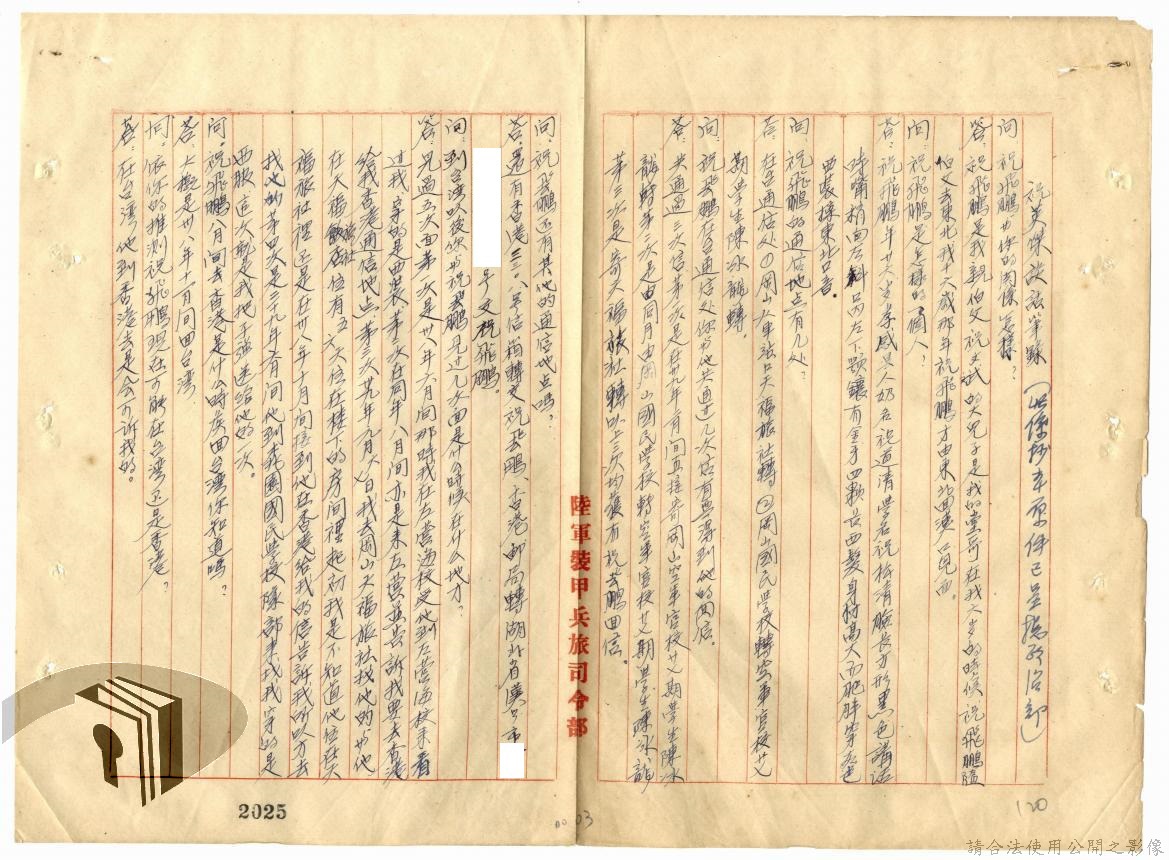 祝英傑談話筆錄(此係抄本原件已呈總政治部)
問:祝飛鵬与你的関係怎樣?
答:祝飛鵬是我親伯父祝文斌的大兒子是我的堂哥在我六岁的時候祝飛鵬隨
伯父去東北我十六歲那年祝飛鵬才由東北回漢口見面。
問:祝飛鵬是怎樣的一個人?
答:祝飛鵬年廿六岁孝感県人奶名祝道清學名祝梅清臉長方形黑色講話
時嘴梢向左斜口内左下顎鑲有金牙四顆蓄西髮身材高大而肥胖穿
西装操東北口音。
問:祝飛鵬的通信地点有几处?
答:在台通信处①岡山火車站口大福旅社轉②岡山國民學校轉空軍官校廿
期學生陳冰龍轉。
問:祝飛鵬在台通信处你与他共通过几次信有無得到他的回信。
答:共通過三次信第一次是在卅九年二月間直接寄岡山空軍官校廿期學生陳冰
龍轉第二次是由同月由岡山國民學校轉空軍官校廿期學生陳冰龍
第三次是寄大福旅社轉以上三次均獲有祝飛鵬回信。
陸軍裝甲兵旅司令部
問:祝飛鵬还有其他的通信地点嗎?
答:还有香港三三八号信箱轉交祝飛鵬、香港郵局轉湖北省漢口市
号交祝飛鵬。
問:到台湾以後你与祝飛鵬見过几次面是什么時候在什么地方?
答:見過五次面第一次是卅八年六月間那時我在左營海校是他到左營海校来看
过我穿的是西装第二次在同年八月間亦是来左營並告訴我要去香港
給我香港通信地点第三次卅九年元月八日我去岡山大福旅社找他的与他
在大福旅社住有五六天住在楼下的房间裡起初我是不知道他住在大
福旅社裡还是在卅八年十二月間接到他在香港給我的信告訴我的所以才去
找他的第四次是三九年二月间他到我們國民學校隊部来找我穿的是
西服這次鄭是我把手錶送给他的一次
問:祝飛鵬八月间去香港是什么時候回台湾你知道嗎?
答:大概是卅八年十二月间回台湾
問:依你的推測祝飛鵬現在可能在台湾还是香港?
答:在台湾他到香港去是会告訴我的。
2025
00.03
120
請合法使用公開之影像